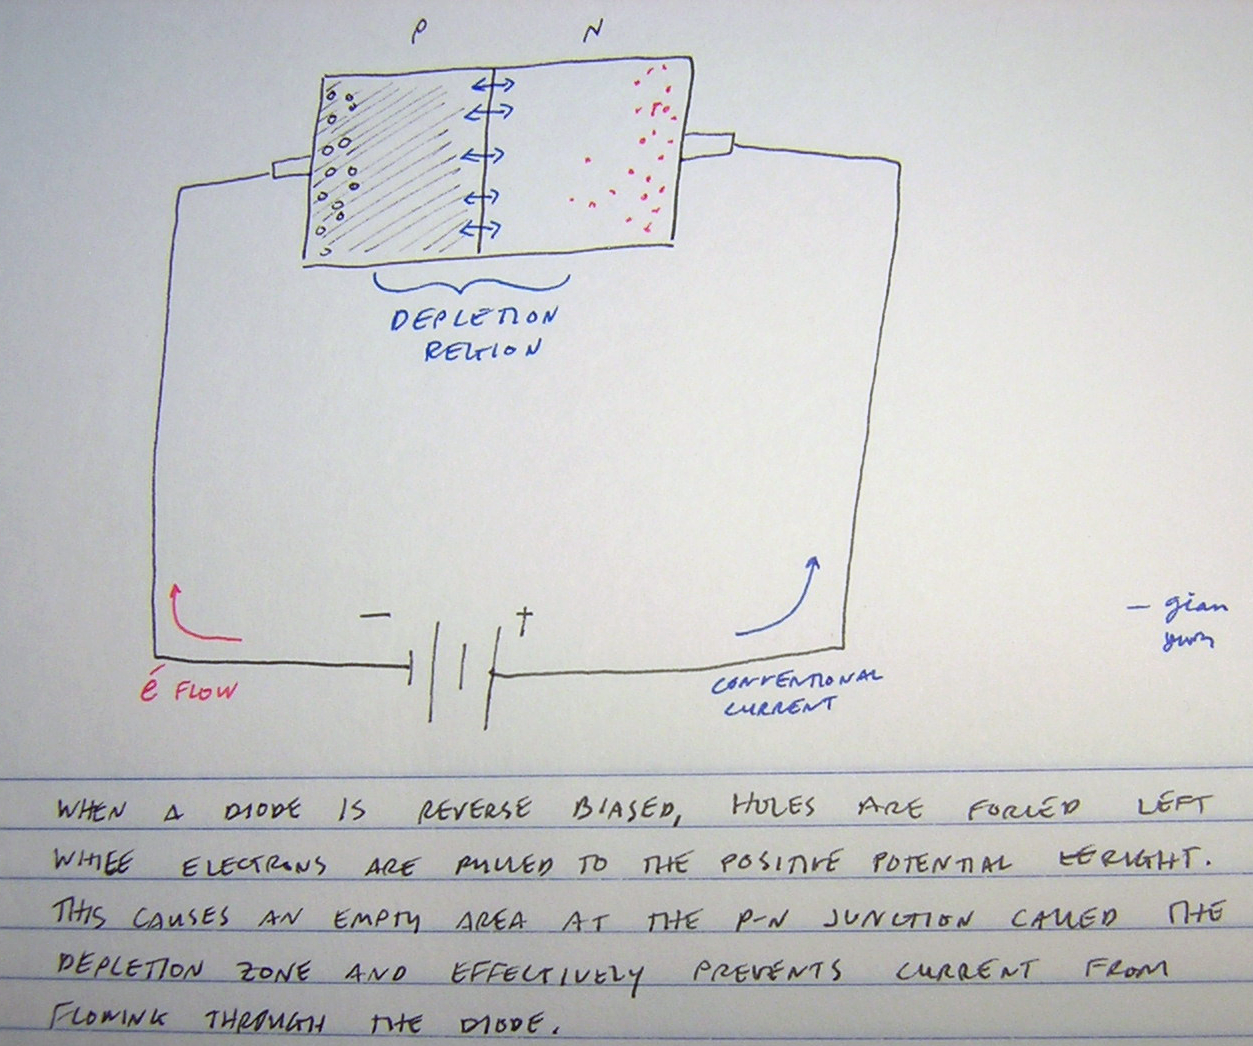 P N
DEPLETION
REGION
− +
é FLOW
CONVENTIONAL
CURRENT
– gian
WHEN A DIODE IS REVERSE BIASED, HOLES ARE FORCED LEFT
WHILE ELECTRONS ARE PULLED TO THE POSITIVE POTENTIAL RIGHT.
THIS CAUSES AN EMPTY AREA AT THE P-N JUNCTION CALLED THE
DEPLETION ZONE AND EFFECTIVELY PREVENTS CURRENT FROM
FLOWING THROUGH THE DIODE.